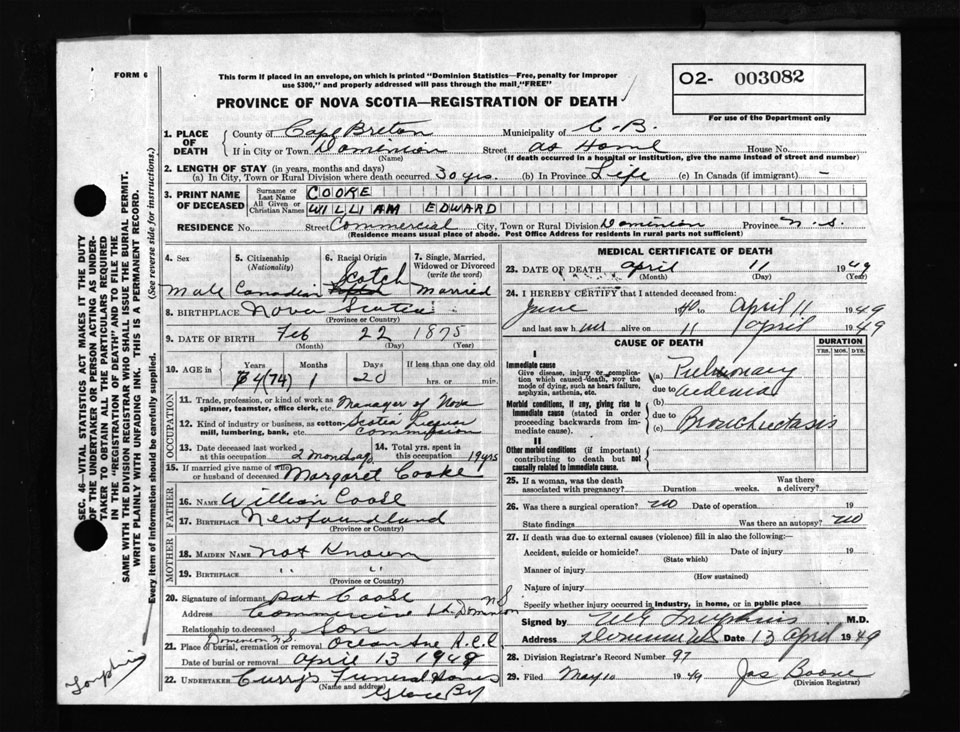 FORM 6
This form if placed in an envelope, on which is printed "Dominion Statistics—Free, penalty for improper
use $300," and properly addressed will pass through the mail, "FREE"
O2- 003082
For use of the Department only
PROVINCE OF NOVA SCOTIA—REGISTRATION OF DEATH
1. PLACE OF DEATH County of Cape Breton Municipality of C.B.
If in City or Town Dominion Street at Home House No.
(Name) (If death occurred in a hospital or institution, give the name instead of street and number)
2. LENGTH OF STAY (in years, months and days)
(a) In City, Town or Rural Division where death occurred 30 yrs. (b) In Province Life (c) In Canada (if immigrant) -
3. PRINT NAME OF DECEASED Surname or Last Name COOKE
All Given or Christian Names WILLIAM EDWARD
RESIDENCE No. Street Commercial City, Town or Rural Division Dominion Province N.S.
(Residence means usual place of abode. Post Office Address for residents in rural parts not sufficient)
4. Sex Male
5. Citizenship (Nationality) Canadian
6. Racial Origin Scotch
7. Single, Married, Widowed or Divorced (write the word) Married
8. BIRTHPLACE Nova Scotia
(Province or Country)
9. DATE OF BIRTH Feb 22 1875
(Month) (Day) (Year)
10. AGE in Years Months Days If less than one day old
(74) 1 20 hrs. or min.
OCCUPATION
11. Trade, profession, or kind of work as spinner, teamster, office clerk, etc. Manager of Nova
12. Kind of industry or business, as cotton-mill, lumbering, bank, etc. Scotia Liquor Commission
13. Date deceased last worked at this occupation 2 months ago
14. Total yrs. spent in this occupation 19 yrs
15. If married give name of wife or husband of deceased Margaret Cooke
FATHER
16. NAME William Cooke
17. BIRTHPLACE Newfoundland
(Province or Country)
MOTHER
18. MAIDEN NAME Not Known
19. BIRTHPLACE " "
(Province or Country)
20. Signature of informant Pat Cooke
Address Commercial St. Dominion N.S.
Relationship to deceased Son
21. Place of burial, cremation or removal Dominion N.S.
Date of burial or removal April 13 1949
22. UNDERTAKER Curry's Funeral Homes
(Name and address) Glace Bay
MEDICAL CERTIFICATE OF DEATH
23. DATE OF DEATH April 11 1949
(Month) (Day) (Year)
24. I HEREBY CERTIFY that I attended deceased from:
June 1940 to April 11 1949
and last saw him alive on 11 April 1949
CAUSE OF DEATH
DURATION
YRS. MOS. DYS.
I
Immediate cause
Give disease, injury or complication which caused death, NOT the mode of dying, such as heart failure, asphyxia, asthenia, etc.
(a) Pulmonary
due to oedema
Morbid conditions, if any, giving rise to immediate cause (stated in order proceeding backwards from immediate cause).
(b)
due to
(c) Bronchiectasis
II
Other morbid conditions (if important) contributing to death but not causally related to immediate cause.
25. If a woman, was the death associated with pregnancy? Duration weeks. Was there a delivery?
26. Was there a surgical operation? no Date of operation 19
State findings Was there an autopsy? no
27. If death was due to external causes (violence) fill in also the following:—
Accident, suicide or homicide? Date of injury 19
(State which)
Manner of injury
(How sustained)
Nature of injury
Specify whether injury occurred in industry, in home, or in public place
Signed by M.D.
Address Dominion Date 13 April 1949
28. Division Registrar's Record Number 97
29. Filed May 10 1949 Jas Boone
(Division Registrar)
SEC. 46—VITAL STATISTICS ACT MAKES IT THE DUTY
OF THE UNDERTAKER OR PERSON ACTING AS UNDER-
TAKER TO OBTAIN ALL THE PARTICULARS REQUIRED
IN THE "REGISTRATION OF DEATH" AND TO FILE THE
SAME WITH THE DIVISION REGISTRAR WHO SHALL ISSUE THE BURIAL PERMIT.
WRITE PLAINLY WITH UNFADING INK. THIS IS A PERMANENT RECORD.
Every item of information should be carefully supplied. (See reverse side for instructions.)